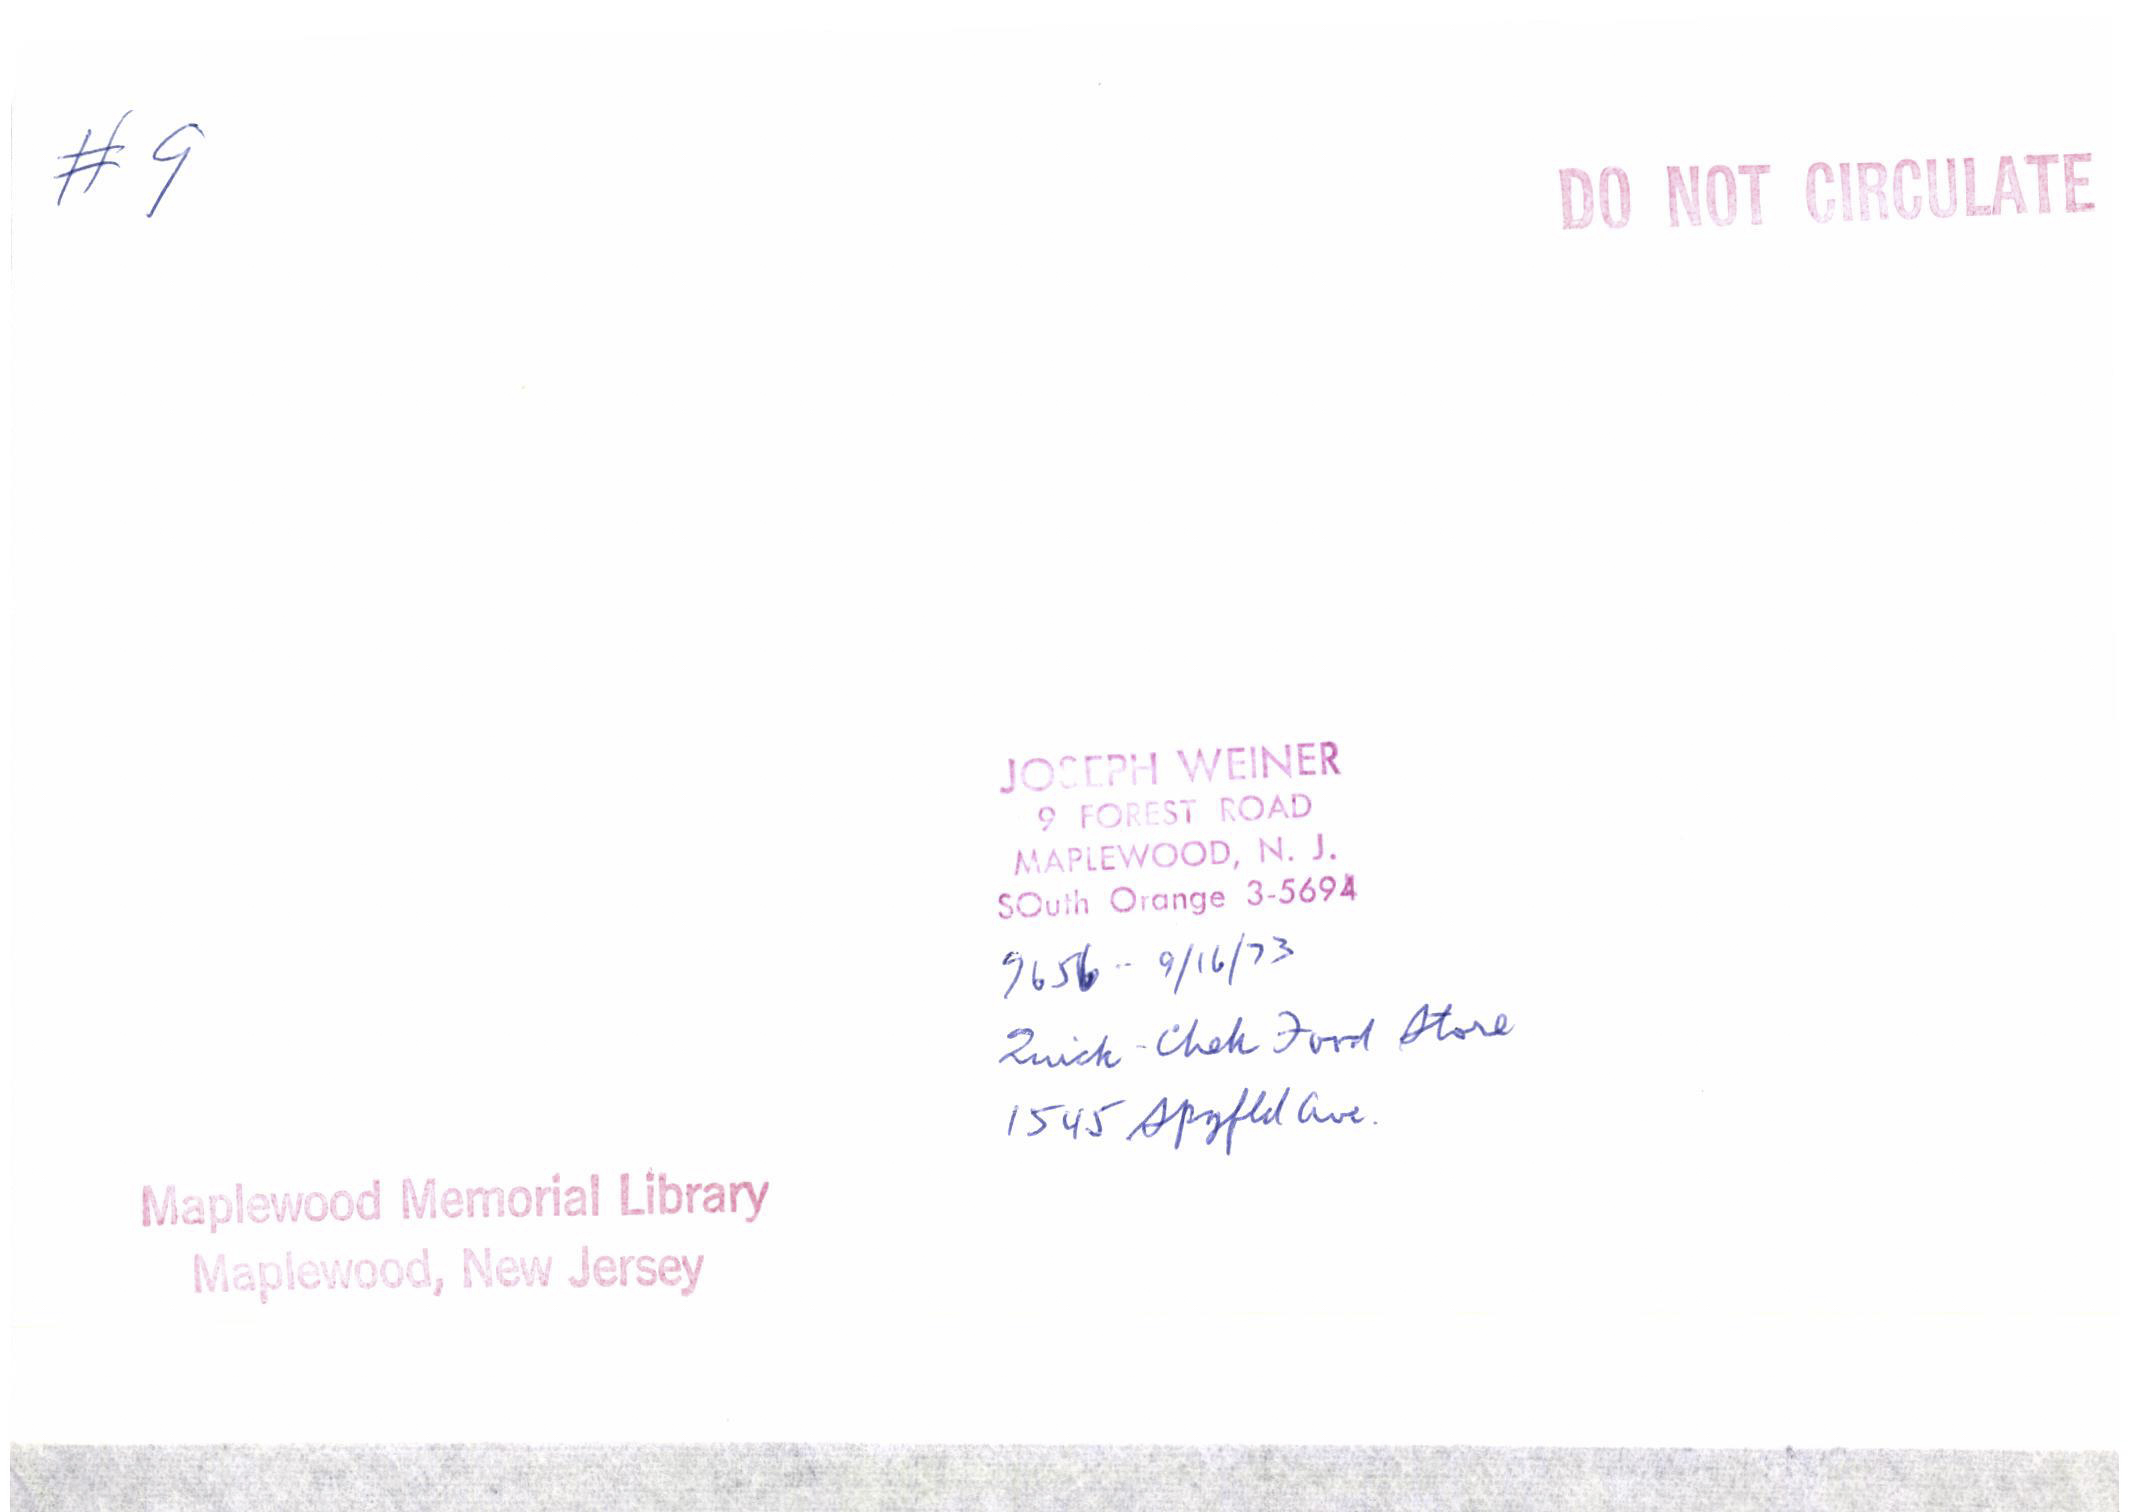 # 9
DO NOT CIRCULATE
JOSEPH WEINER
9 FOREST ROAD
MAPLEWOOD, N. J.
SOuth Orange 3-5694
9656 - 9/16/73
Quick-Chek Food Store
1545 Spgfld Ave.
Maplewood Memorial Library
Maplewood, New Jersey